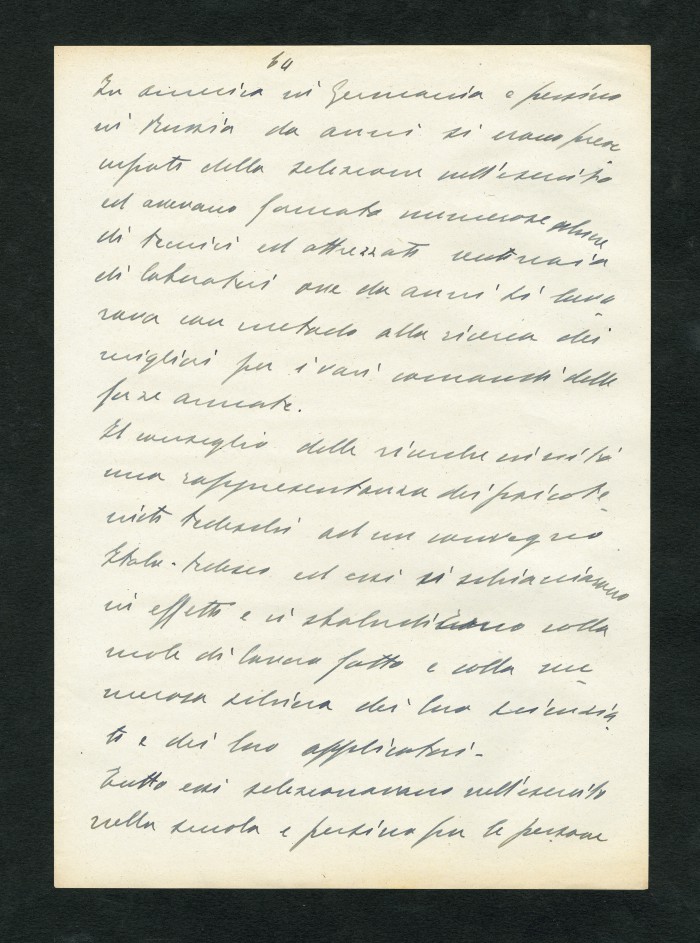 64
In America in Germania e persino
in Russia da anni si erano preoc
cupati della selezione nell'esercito
ed avevano formato numerose schiere
di tecnici ed attrezzati centinaia
di laboratori ove da anni si lavo
rava con metodo alla ricerca dei
migliori per i vari comandi delle
forze armate.
Il consiglio delle ricerche invitò
una rappresentanza dei psicote
nici tedeschi ad un convegno
Italo-tedesco ed essi si schiacciarono
in effetti e ci sbalordirono colla
mole di lavoro fatto e colla nu
merosa schiera dei loro scienzia
ti e dei loro applicatori-
Tutto essi selezionavano nell'esercito
nella scuola e persino per le persone